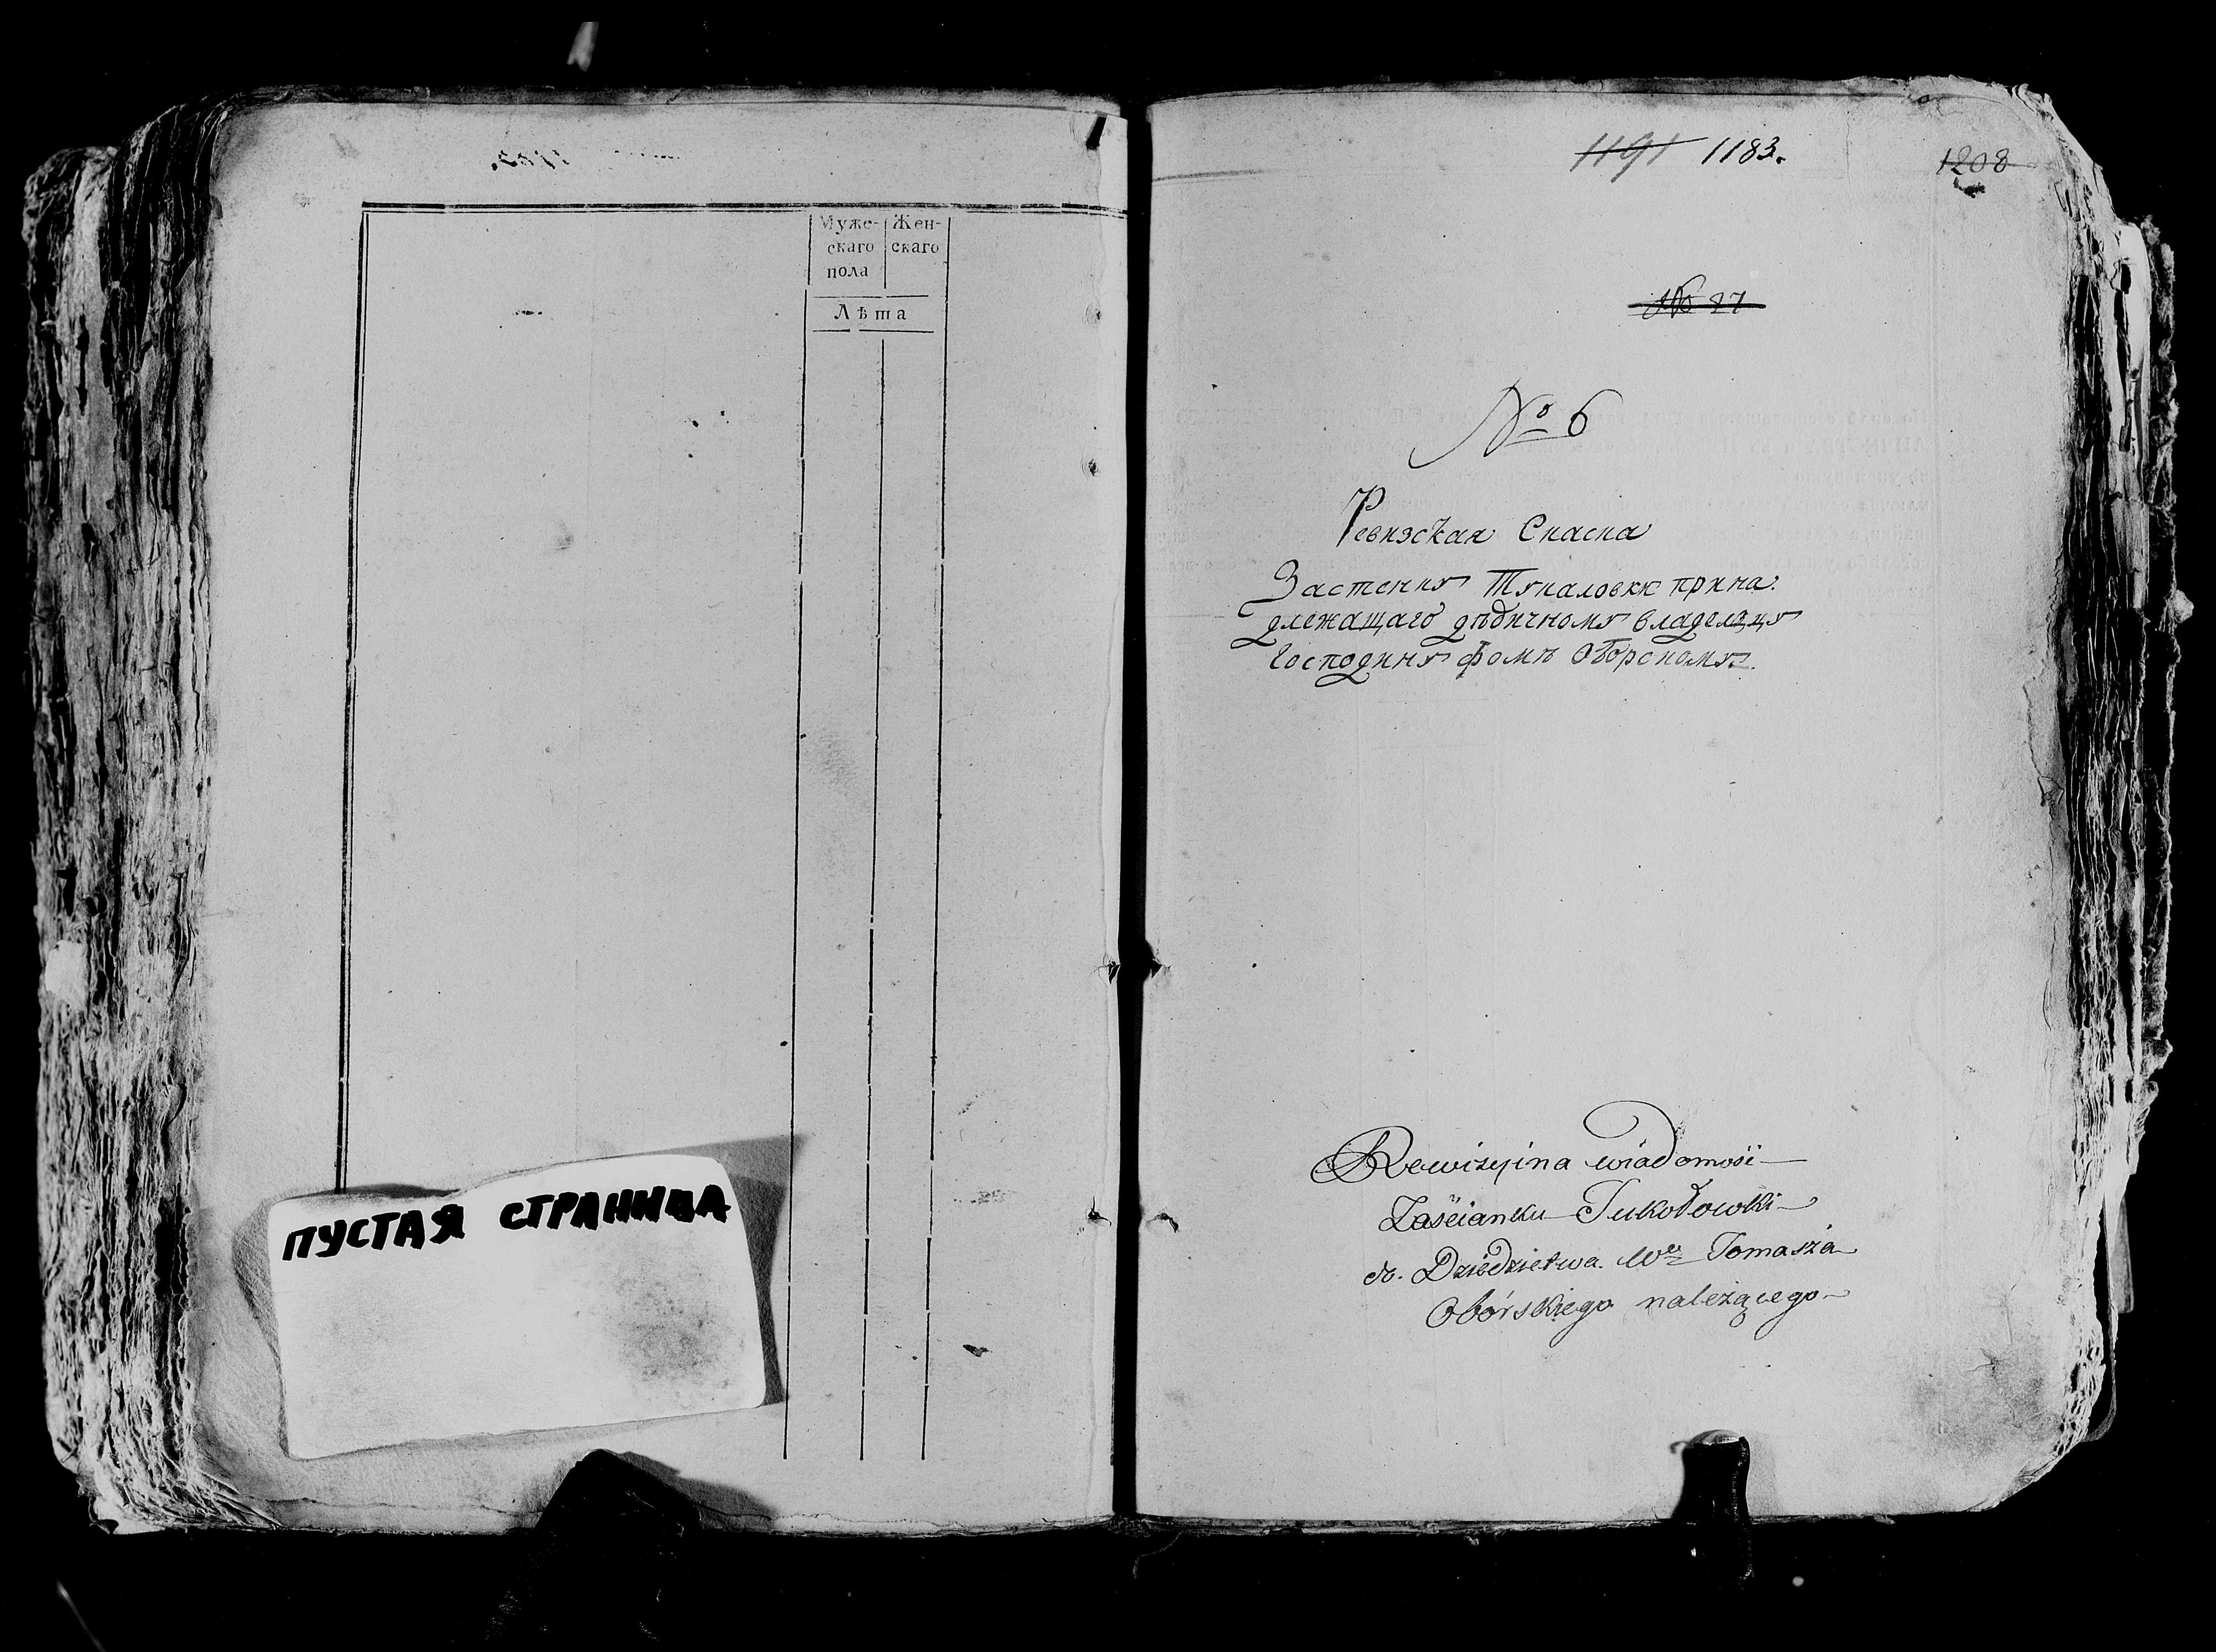 Муже- Жен-
скаго скаго
пола
Лѣта
ПУСТАЯ СТРАНИЦА
1191 1183. 1208
№ 27
№ 6
Ревизская Сказка
Застенку Тукаловки прина:
длежащаго дѣдичному владелцу
Господину Фомѣ Оборскому.
Rewizyina wiadomość
Zaścianku Tukołowki
d. Dziedzictwa. Wo Tomasza
Obórskiego należącego